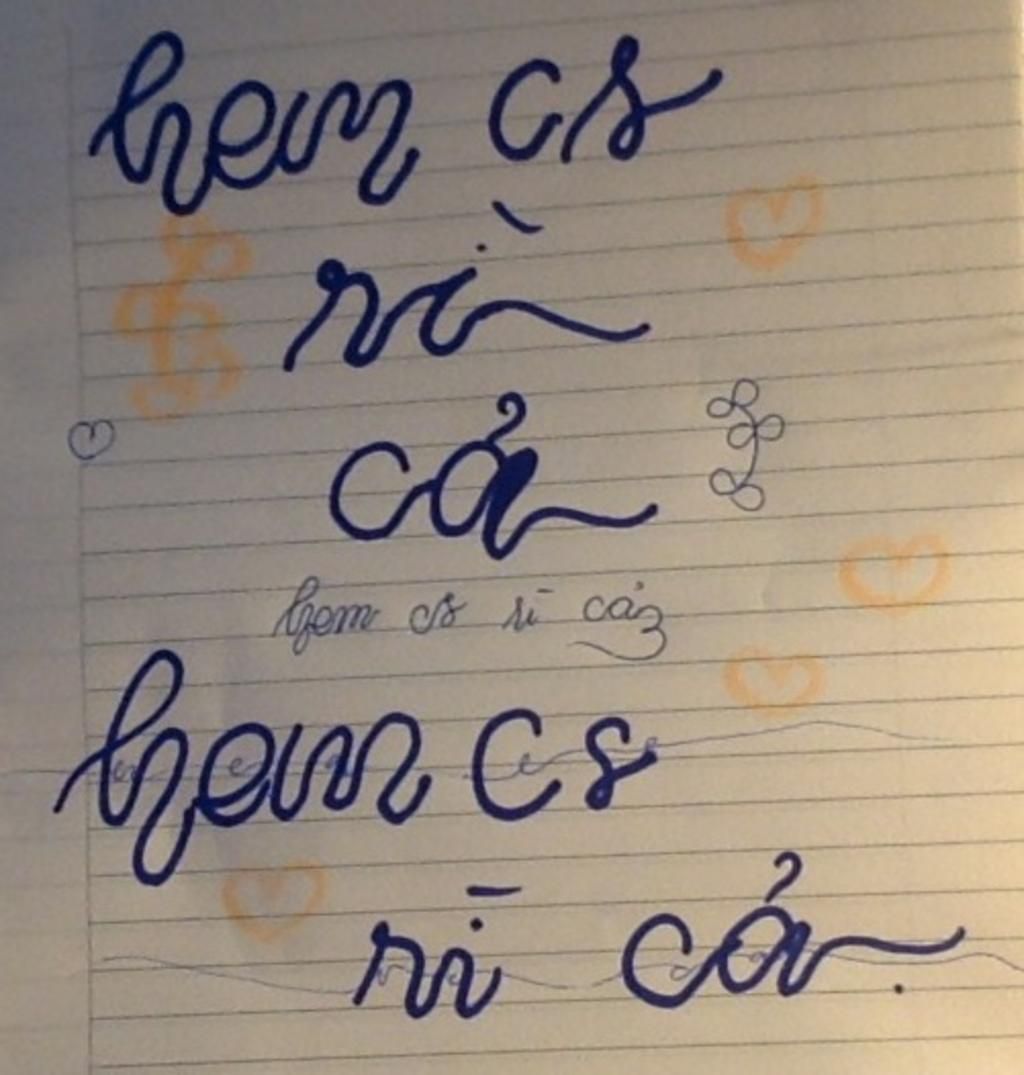 hem cs
rì
cả
hem cs rì cả
hem cs
rì cả.